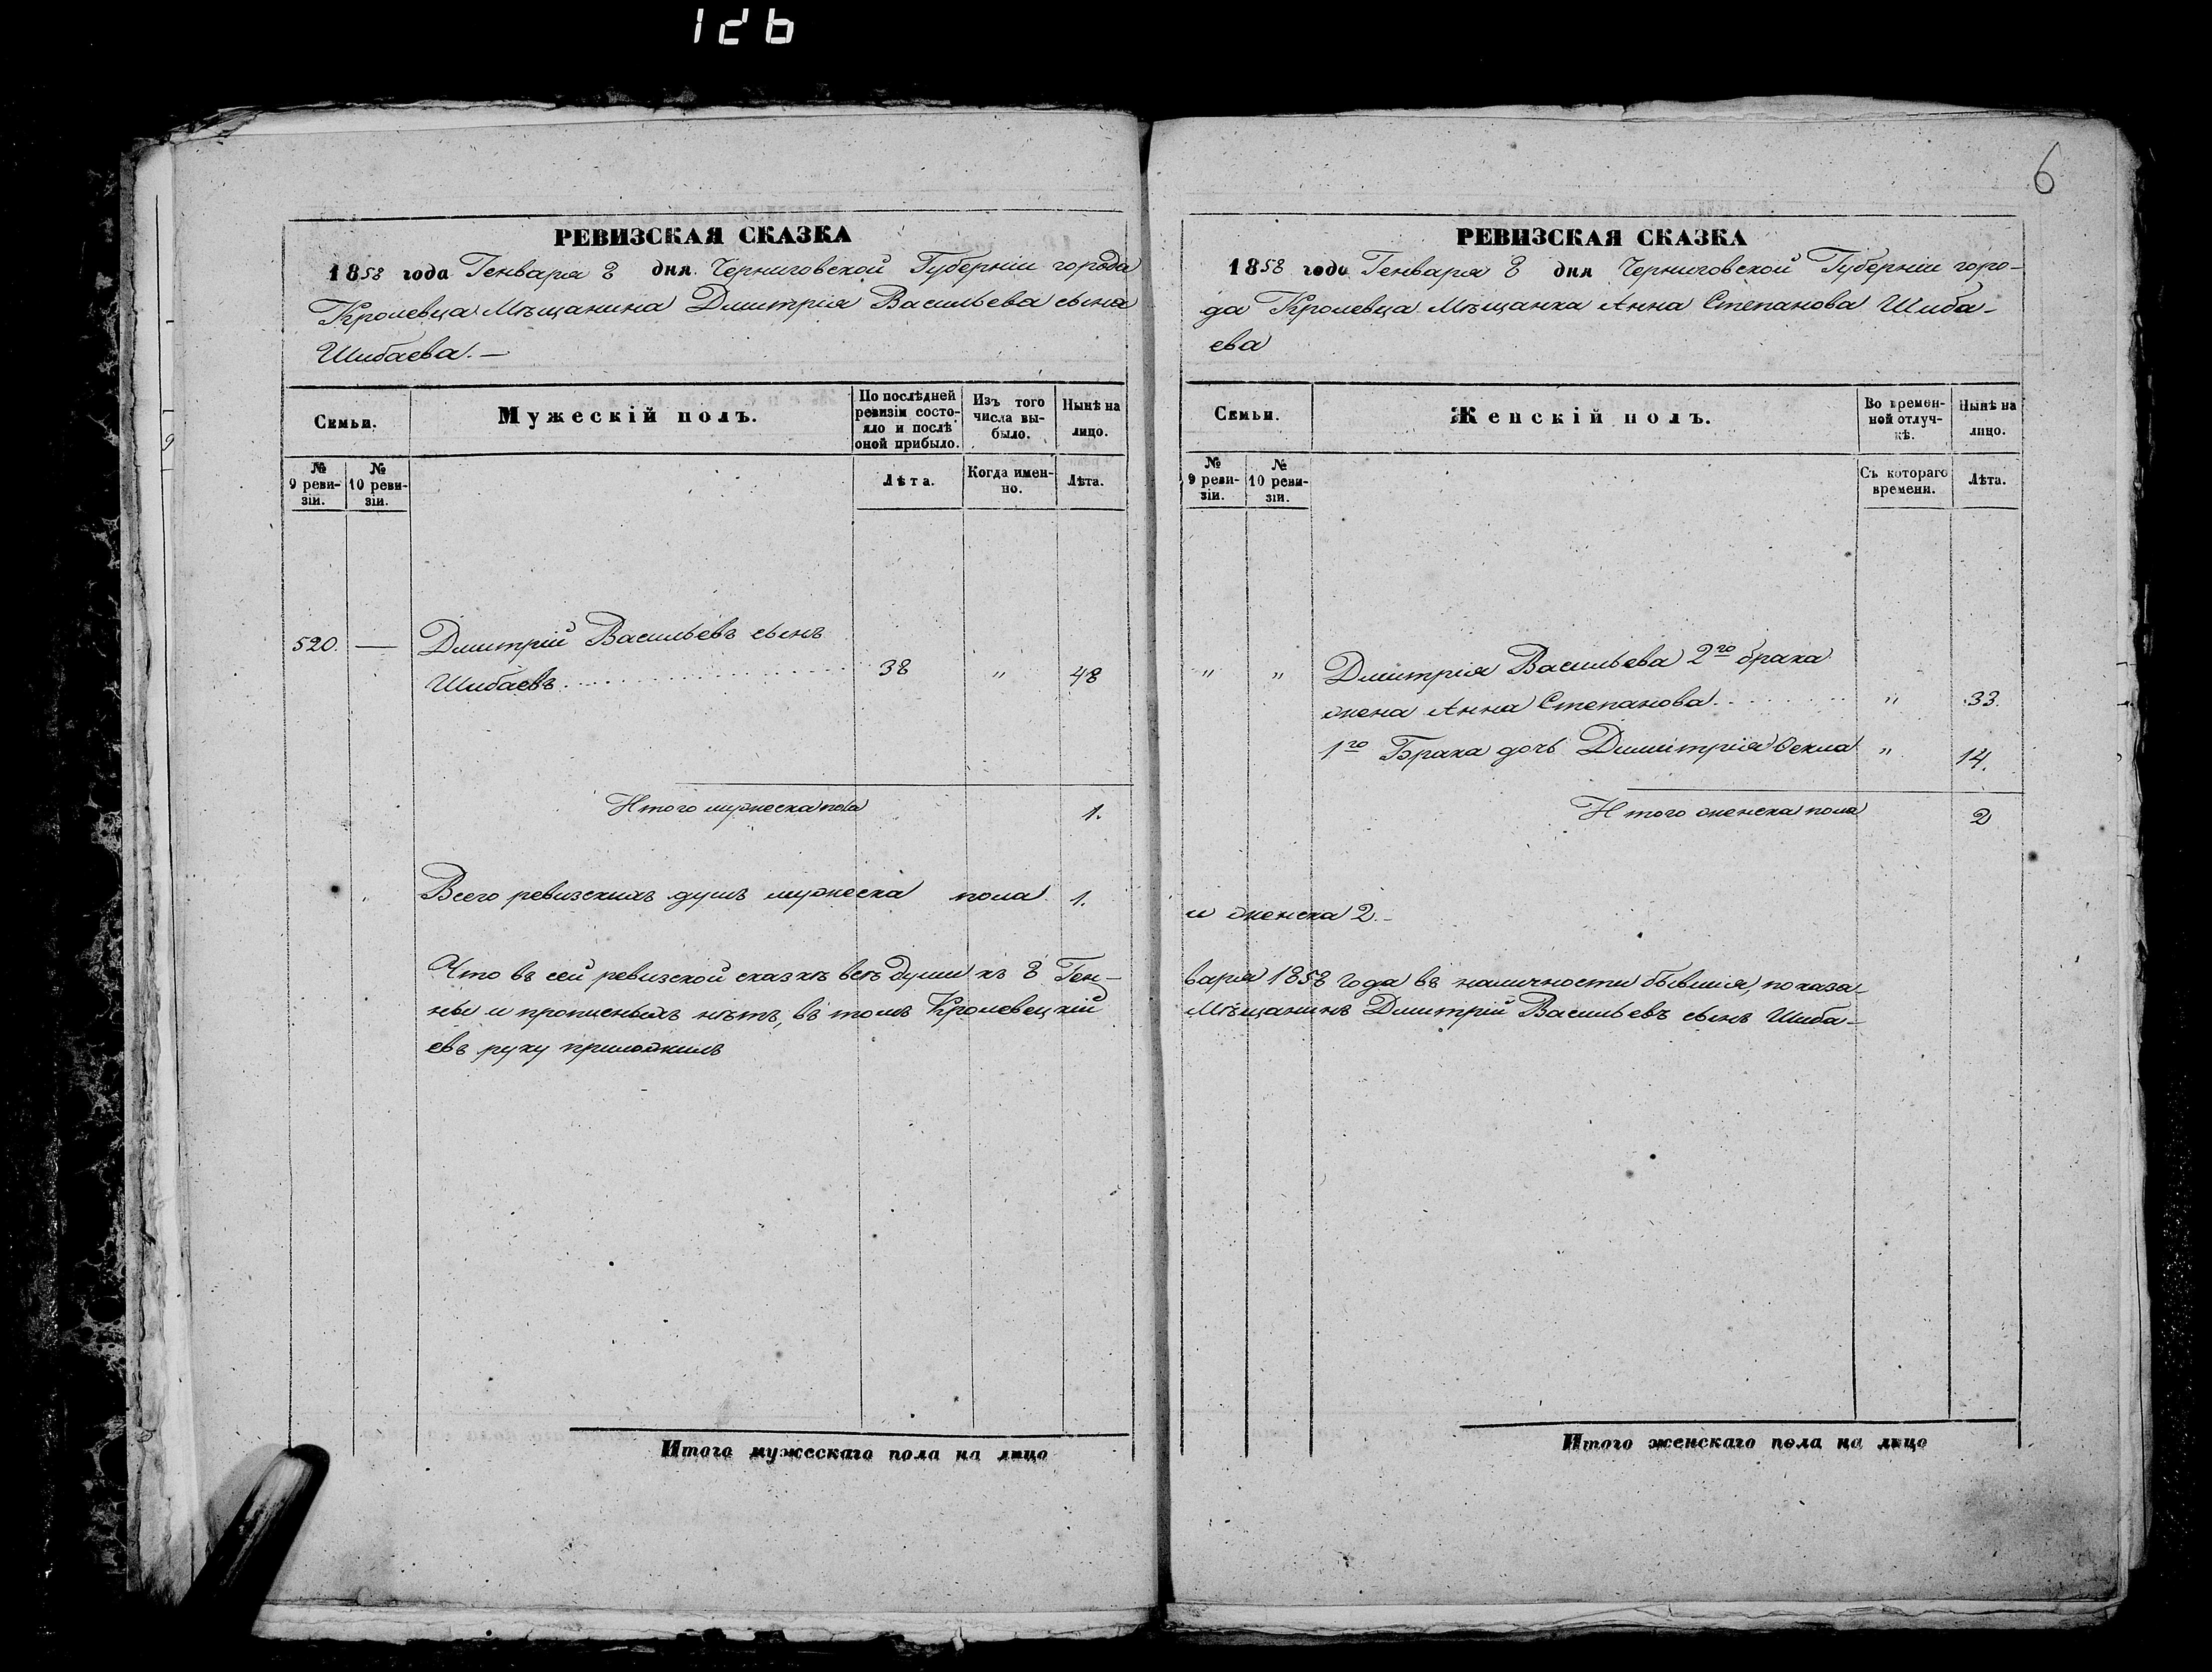 126
6
РЕВИЗСКАЯ СКАЗКА
1858 года Генваря 8 дня Черниговской Губерніи города
Кролевца Мѣщанина Дмитрія Васильева сына
Шибаева. —
Семьи.
Мужескій полъ.
По послѣдней
ревизіи состо-
яло и послѣ
оной прибыло.
Изъ того
числа вы-
было.
Нынѣ на
лицо.
№
9 реви-
зіи.
№
10 реви-
зіи.
Лѣта.
Когда имен-
но.
Лѣта.
520. — Дмитрій Васильевъ сынъ
Шибаевъ . . . . . . . . 38 " 48
Итого мужеска пола 1.
Всего ревизскихъ душъ мужеска пола 1.
Что въ сей ревизской сказкѣ всѣ души къ 8 Ген-
ны и прописныхъ нѣтъ, въ томъ Кролевецкій
евъ руку приложилъ
Итого мужескаго пола на лицо
РЕВИЗСКАЯ СКАЗКА
1858 года Генваря 8 дня Черниговской Губерніи горо-
да Кролевца Мѣщанка Анна Степанова Шиба-
ева
Семьи.
Женскій полъ.
Во времен-
ной отлуч-
кѣ.
Нынѣ на
лицо.
№
9 реви-
зіи.
№
10 реви-
зіи.
Съ котораго
времени.
Лѣта.
" " Дмитрія Васильева 2го брака
жена Анна Степанова . . . . . " 33.
1го Брака дочь Димитрія Ѳекла " 14.
Итого женска пола 2
и женска 2. —
варя 1858 года въ наличности бывшия, показа-
Мѣщанинъ Дмитрій Васильевъ сынъ Шиба-
Итого женскаго пола на лицо